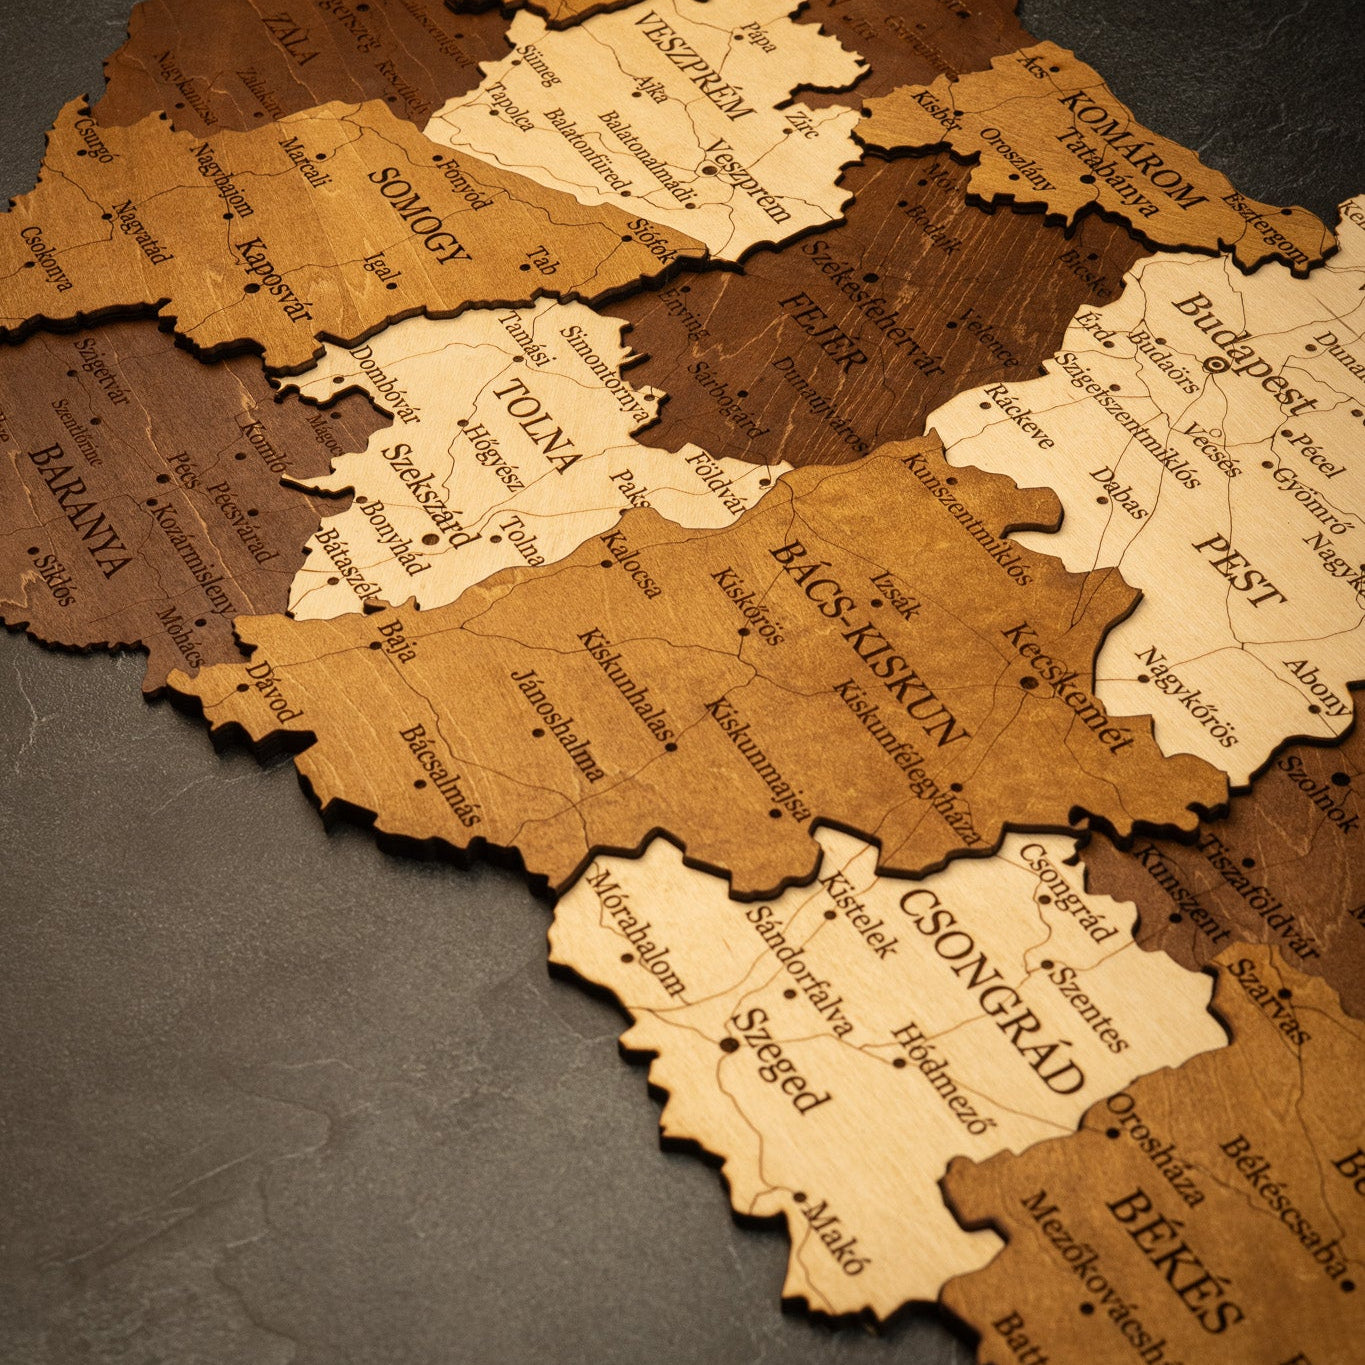 ZALA
Nagykanizsa
Keszthely
VESZPRÉM
Pápa
Sümeg
Ajka
Tapolca
Zirc
Balatonfüred
Balatonalmádi
Veszprém
Ács
KOMÁROM
Kisbér
Tatabánya
Oroszlány
Esztergom
Csurgó
Nagybajom
Marcali
SOMOGY
Fonyód
Nagyatád
Csokonya
Kaposvár
Igal
Tab
Siófok
Mór
Bodajk
Bicske
Székesfehérvár
FEJÉR
Velence
Enying
Sárbogárd
Dunaújváros
Budapest
Érd
Budaörs
Szigetszentmiklós
Vecsés
Pécel
Gyömrő
Ráckeve
Dabas
PEST
Nagykőrös
Abony
Tamási
Simontornya
Dombóvár
TOLNA
Hőgyész
Szekszárd
Paks
Földvár
Bonyhád
Tolna
Bátaszék
Szigetvár
Szentlőrinc
Komló
BARANYA
Pécs
Pécsvárad
Kozármisleny
Siklós
Mohács
Kunszentmiklós
Kalocsa
BÁCS-KISKUN
Izsák
Kiskőrös
Kecskemét
Baja
Kiskunhalas
Dávod
Jánoshalma
Kiskunmajsa
Kiskunfélegyháza
Bácsalmás
Szolnok
Tiszaföldvár
Kunszent
Mórahalom
Kistelek
CSONGRÁD
Csongrád
Sándorfalva
Szentes
Szeged
Hódmező
Makó
Szarvas
Orosháza
Békéscsaba
BÉKÉS
Mezőkovácsh
Batt